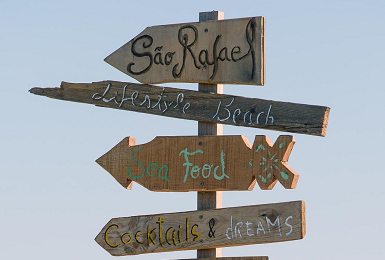 São Rafael
Lifestyle Beach
Sea Food
Cocktails & dREAMS